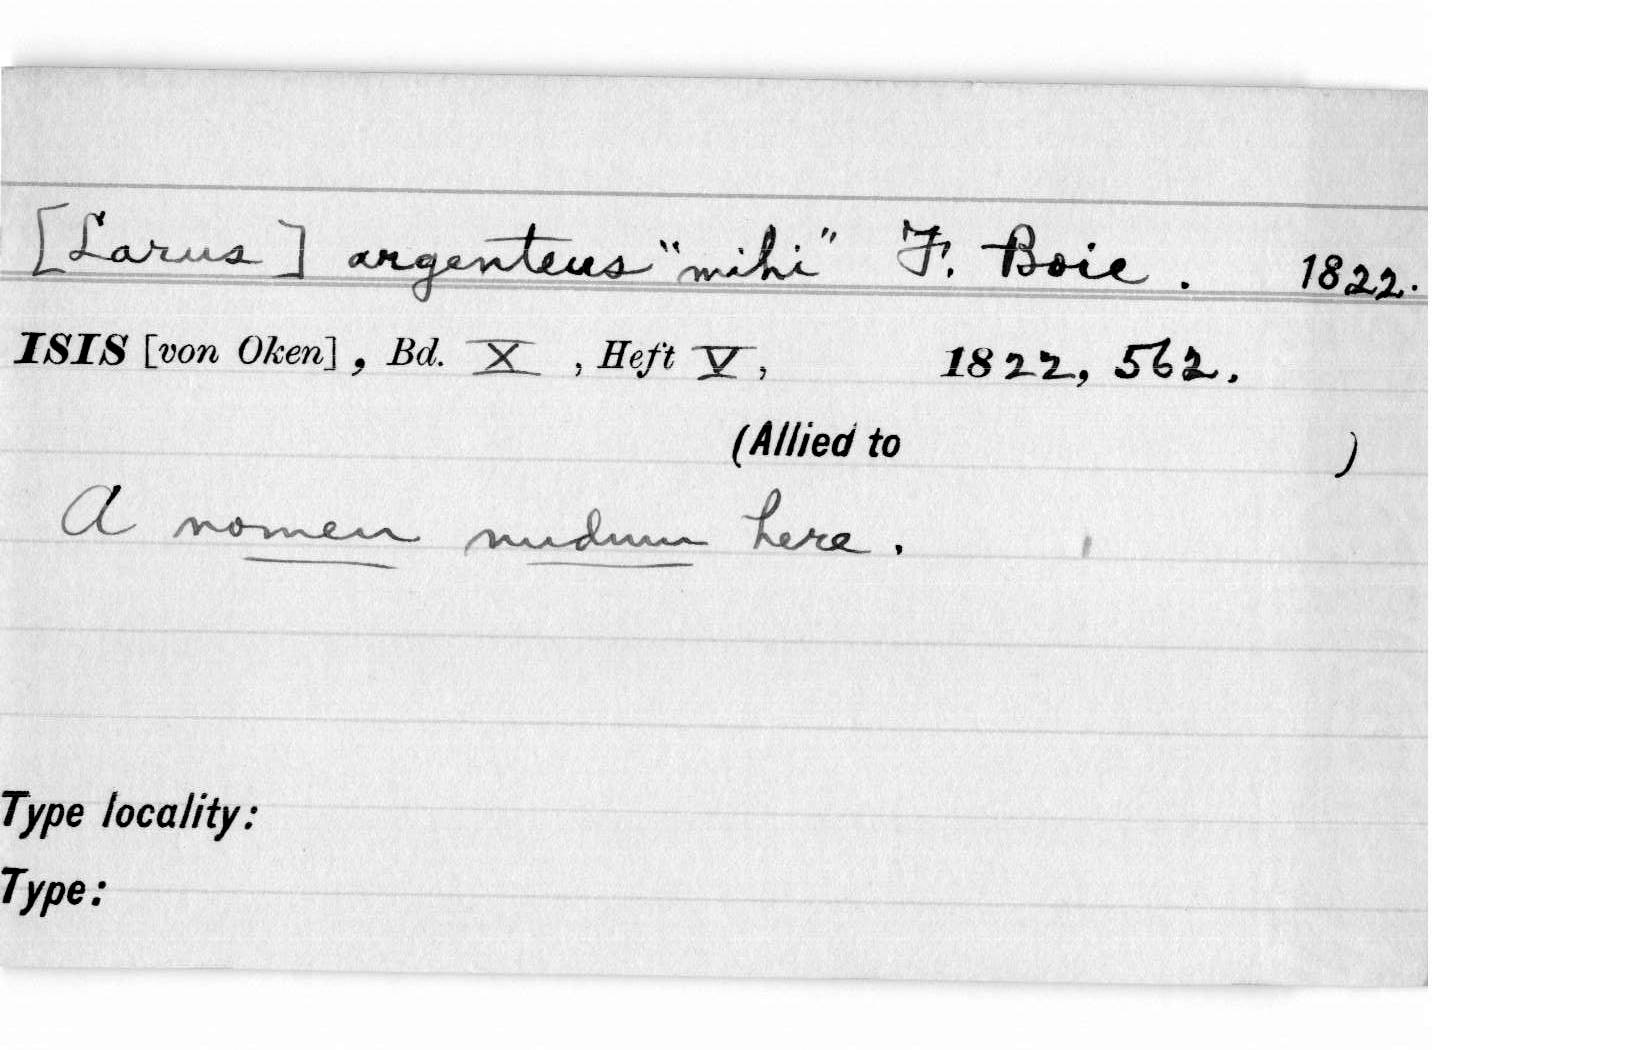 [Larus] argenteus "mihi" F. Boie. 1822.
ISIS [von Oken], Bd. X, Heft V, 1822, 562.
(Allied to )
A nomen nudum here.
Type locality:
Type: